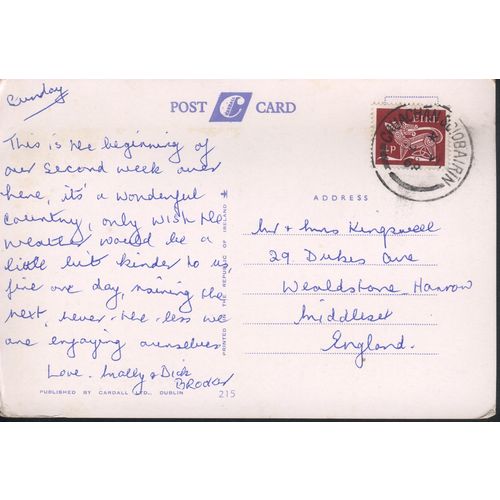 Sunday
POST CARD
This is the beginning of
our second week over
here, it's a wonderful
country, only wish the
weather would be a
little bit kinder to us
fine one day, raining the
next, never-the-less we
are engaying ourselves.
Love. Mally & Dick
BROCKER
PUBLISHED BY CARDALL LTD., DUBLIN
215
PRINTED IN THE REPUBLIC OF IRELAND
EIRE
ADDRESS
Mr & Mrs Kingswell
29 Dukes Ave
Wealdstone Harrow
Middlesex
England.